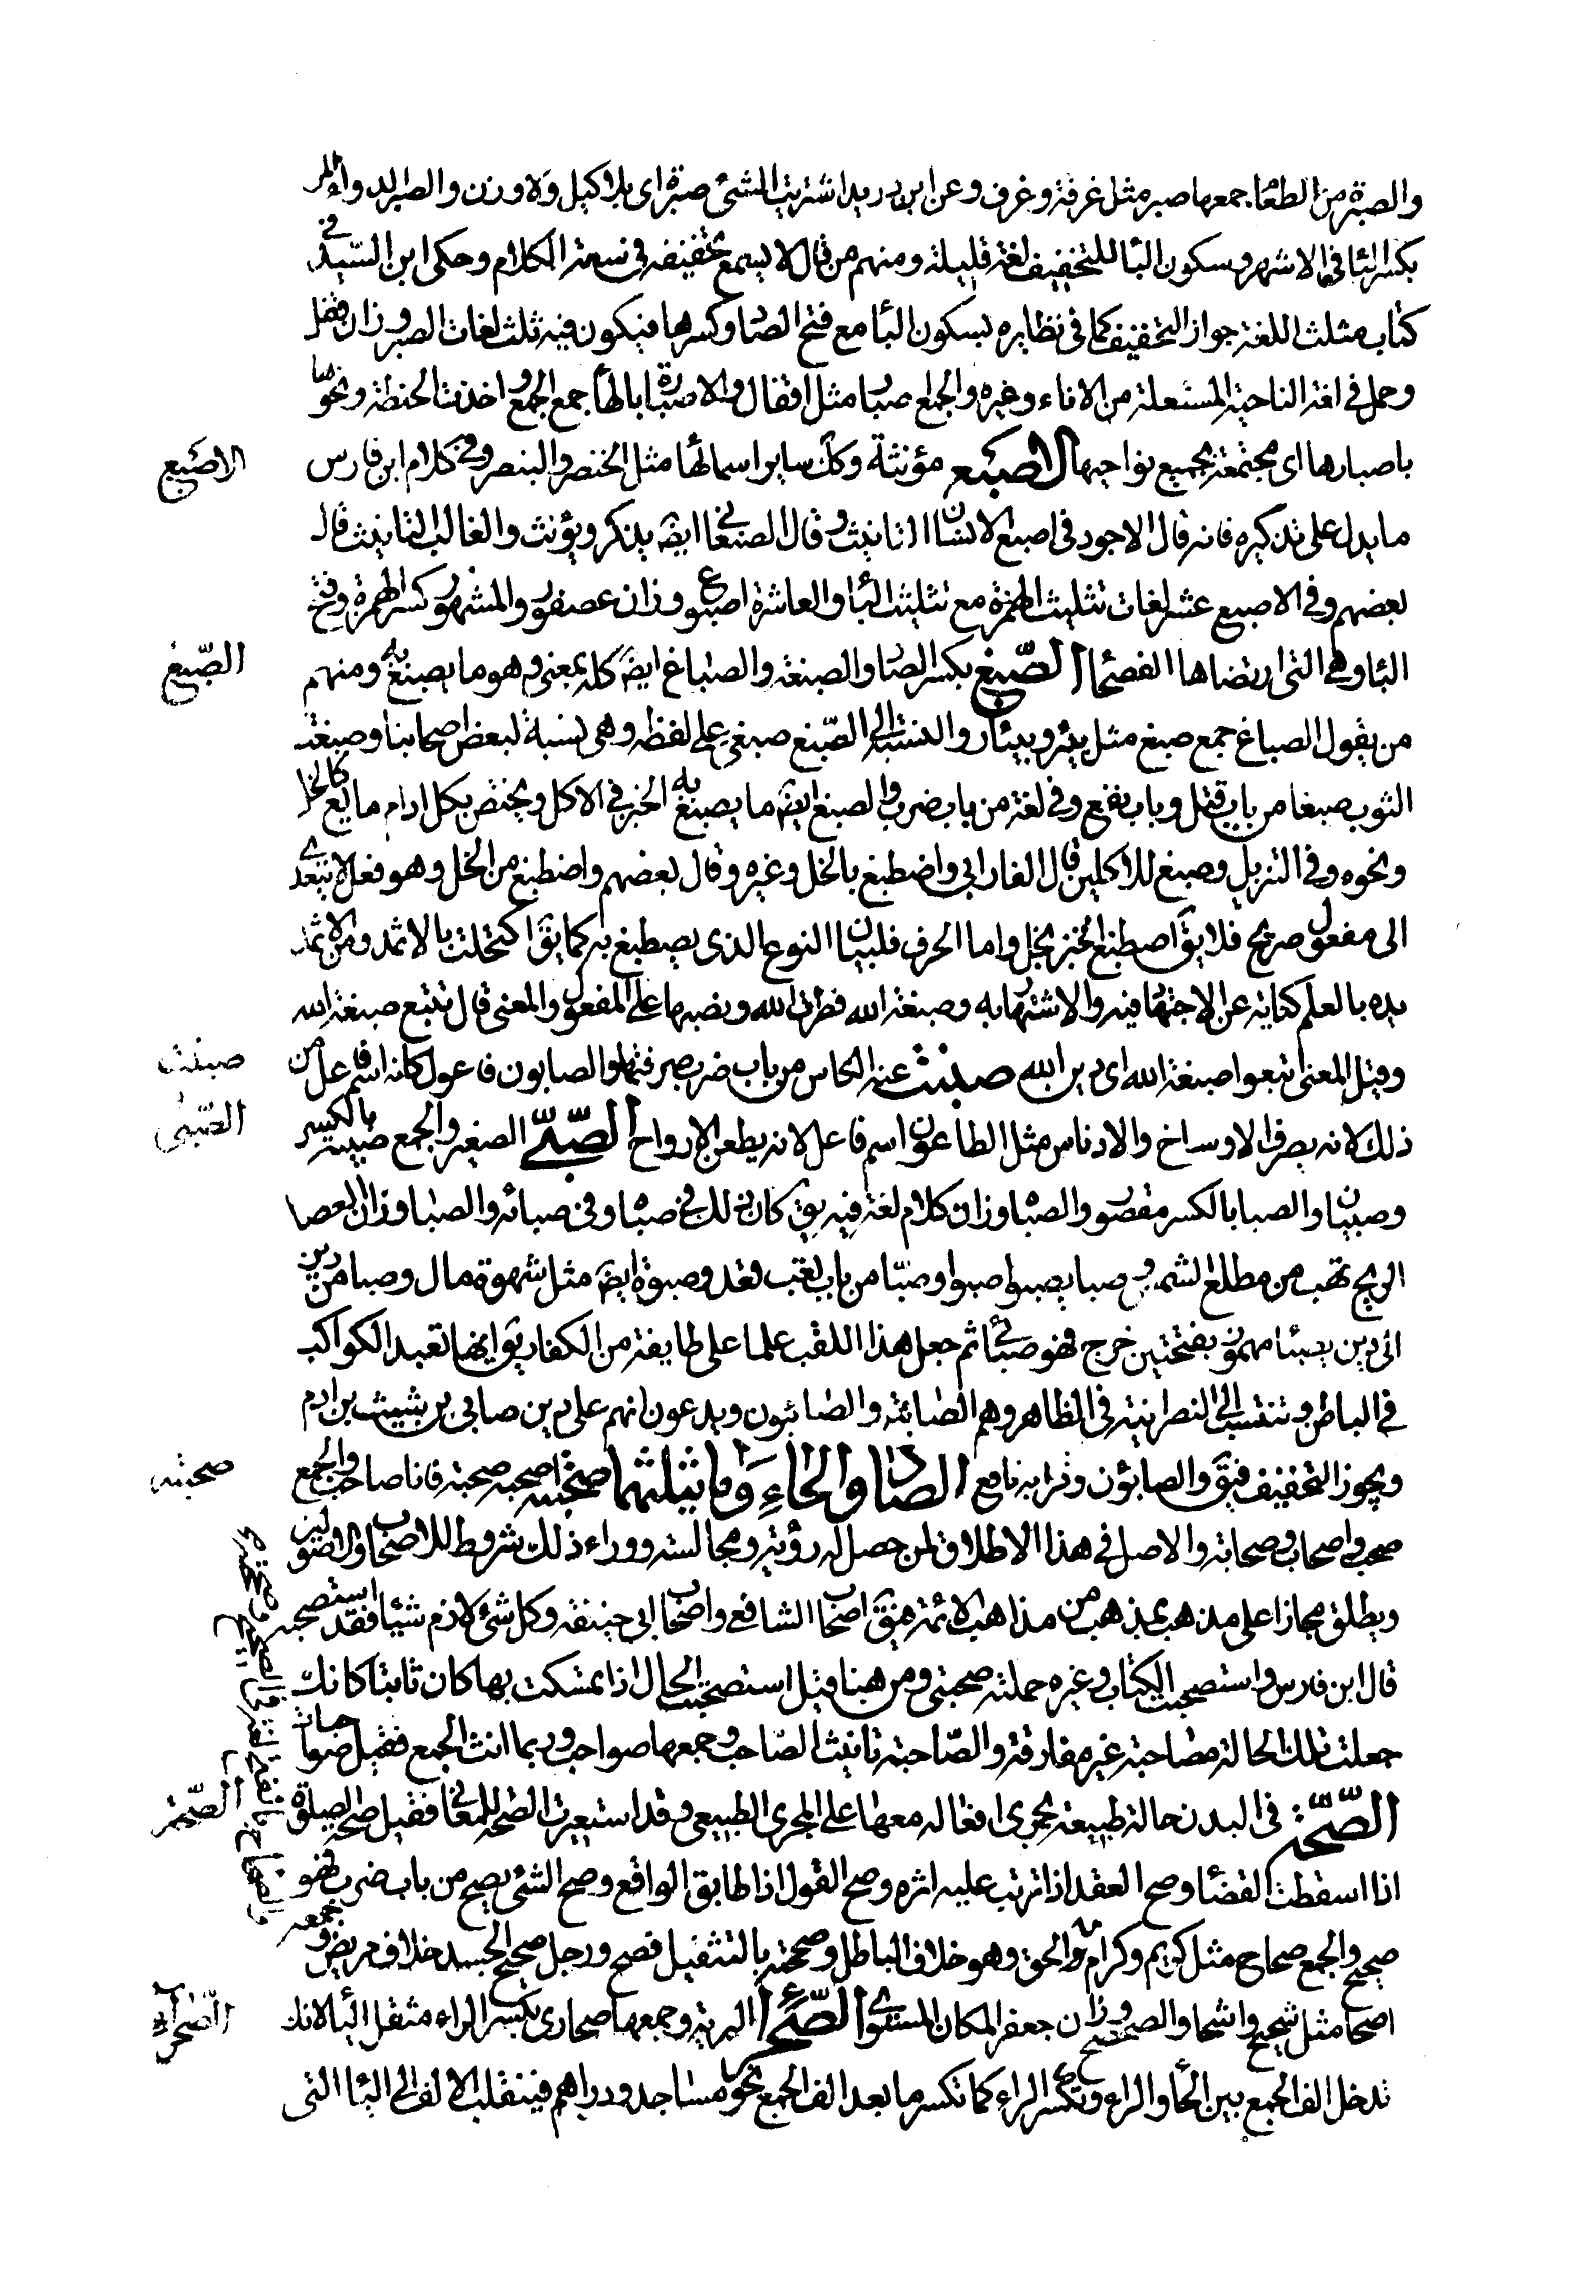 والصبرة من الطعام جمعها صبر مثل غرفة وغرف وعن ابن دريد اشتريت الشئ صبرة اى بلا كيل ولا وزن والصبر الدواء المر
بكسر البا فى الاشهر وسكون البا للتخفيف لغة قليلة ومنهم من قال لا يسمع تخفيفه فى سعة الكلام وحكى ابن السيد فى
كتاب مثلث اللغة جواز التخفيف كما فى نظايره بسكون البا مع فتح الصاد وكسرها فيكون فيه ثلث لغات والصبر وزان قفل
وحمل فى لغة الناحية المستعلية من الاناء وغيره والجمع اصبار مثل اقفال والاصبارة بالها جمع الجمع واخذت الحنطة ونحوها
باصبارها اى مجتمعة بجميع نواحيها الاصبع مؤنثة وكذلك ساير اسمائها مثل الخنصر والبنصر وفى كلام ابن فارس
ما يدل على تذكيره فانه قال الاجود فى اصبع الانسان التانيث وقال الصنعانى ايضا يذكر ويؤنث والغالب التانيث قال
بعضهم وفى الاصبع عشر لغات تثليث الهمزة مع تثليث البا والعاشرة اصبوع وزان عصفور والمشهور كسر الهمزة وفتح
البا وهى التى ارتضاها الفصحا الصبغ بكسر الصاد والصبغة والصباغ ايضا كله بمعنى وهو ما يصبغ به ومنهم
من يقول الصباغ جمع صبغ مثل بئر وبيار والنسبة الى الصبغ صبغى على لفظه وهى نسبة لبعض اصحابنا وصبغت
الثوب صبغا من باب قتل وباب نفع وفى لغة من باب ضرب والصبغ ايضا ما يصبغ به الخبز فى الاكل ويختص بكل ادام مايع كالخل
ونحوه وفى التنزيل وصبغ للاكلين قال الفارابى واضطبغ بالخل وغيره وقال بعضهم واضطبغ من الخل وهو فعل لا يتعدى
الى مفعول صريح فلا يق اصطبغ الخبز بخل واما الحرف فلبيان النوع الذى يصطبغ به كما يق اكتحلت بالاثمد ومن الاثمد
يده بالعلم كناية عن الاجتهاد فيه والاشتهار به وصبغة الله فطرة الله ونصبها على المفعول والمعنى قال نتبع صبغة الله
وقيل المعنى اتبعوا صبغة الله اى دين الله صبنت عنه الكاس من باب ضرب صرفتها والصابون فاعول كانه اسم فاعل من
ذلك لانه يصرف الاوساخ والادناس مثل الطاعون اسم فاعل لانه يطعن الارواح الصبى الصغير والجمع صبية بالكسر
وصبيان والصبا بالكسر مقصور والصباء وزان كلام لغة فيه يق كان ذلك فى صباه وفى صبائه والصبا وزان العصا
الريح تهب من مطلع الشمس وصبا يصبو صبوا وصبا من باب قعد وصبوة ايضا مثل شهوة مال وصبا من دين
الى دين يصبئا مهموز بفتحتين خرج فهو صابئ ثم جعل هذا اللقب علما على طايفة من الكفار يق انها تعبد الكواكب
فى الباطن وتنتسب الى النصرانية فى الظاهر وهم الصابئة والصابئون ويدعون انهم على دين صابى بن شيث بن ادم
ويجوز التخفيف فيق والصابون وقرا به نافع الصاد والحاء وما يثلثهما صحبته اصحبه صحبة فانا صاحب والجمع
صحب واصحاب وصحابة والاصل فى هذا الاطلاق لمن حصل له رؤية ومجالسة ووراء ذلك شروط للاصوليين
ويطلق مجازا على من تمذهب بمذهب من مذاهب الائمة فيق اصحاب الشافعى واصحاب ابى حنيفة وكل شئ لازم شيئا فقد استصحبه
قال ابن فارس واستصحبت الكتاب وغيره حملته صحبتى ومن هنا قيل استصحبت الحال اذا تمسكت بها كان ثابتا كانك
جعلت تلك الحالة مصاحبة غير مفارقة والصاحبة تانيث الصاحب وجمعها صواحب وربما انث الجمع فقيل صواحبات
الصحة فى البدن حالة طبيعة تجرى افعاله معها على المجرى الطبيعى وقد استعيرت الصحة للمعانى فقيل صحت الصلوة
اذا اسقطت القضا وصح العقد اذا ترتب عليه اثره وصح القول اذا طابق الواقع وصح الشئ يصح من باب ضرب فهو
صحيح والجمع صحاح مثل كريم وكرام والحق وهو خلاف الباطل وصححته بالتثقيل فصح ورجل صحيح الجسد خلاف مريض وجمعه
اصحا مثل شحيح واشحا والصحصح وزان جعفر المكان المستوى الصحرا البرية وجمعها صحارى بكسر الراء مثقل اليا لانك
تدخل الف الجمع بين الحا والراء وتكسر الراء كما تكسر ما بعد الف الجمع نحو مساجد ودراهم فينقلب الالف الى اليا التى
الاصبع
الصبغ
صبنت
الصبى
صحبته
الصحة
الصحراء